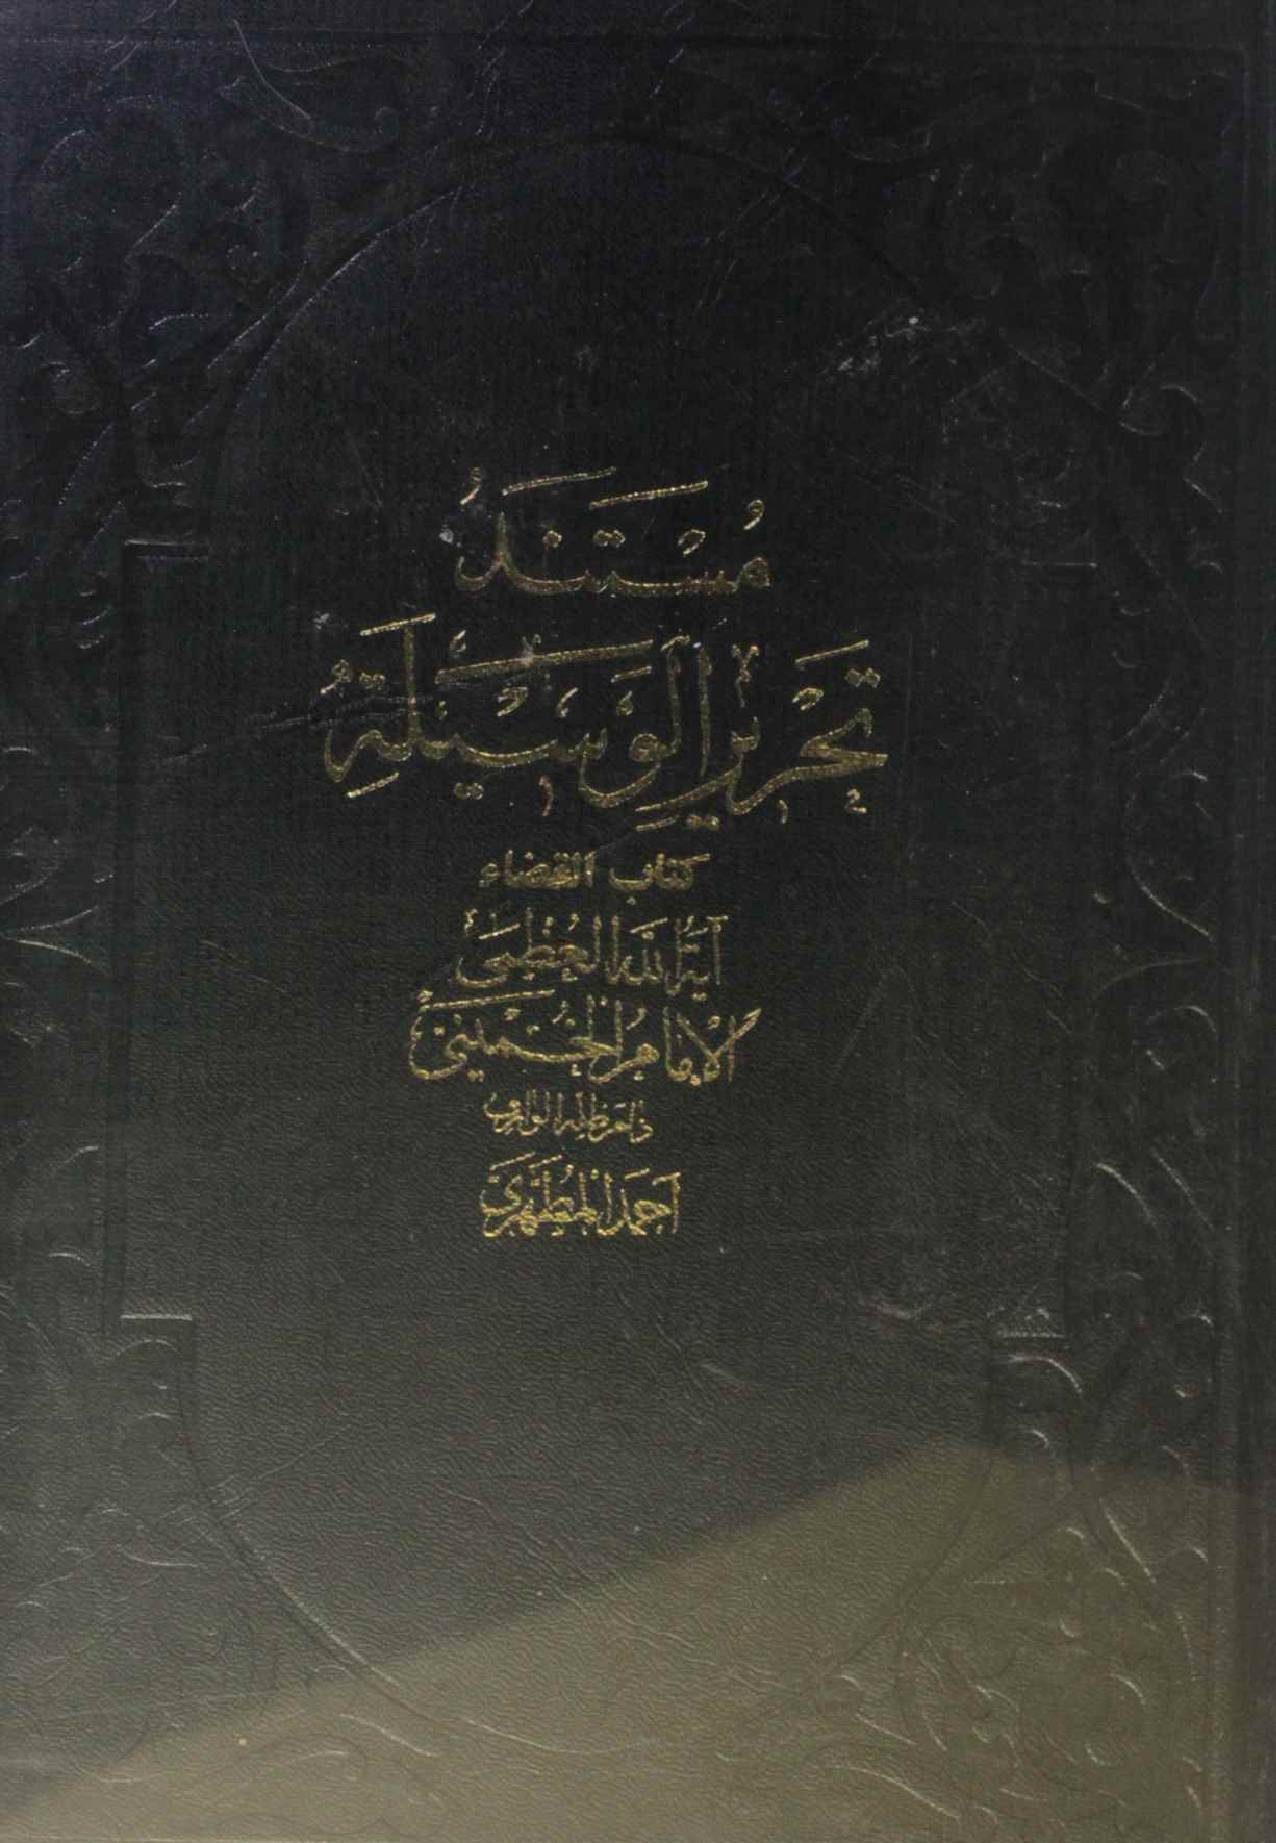 مُسْتَنَدُ
تَحْرِيرِ الْوَسِيلَةِ
كتاب القضاء
آيَةُ اللهِ الْعُظْمَى
الْإِمَامُ الْخُمَيْنِي
دام ظله الوارف
أَحْمَدُ الْمُطَهَّرِي